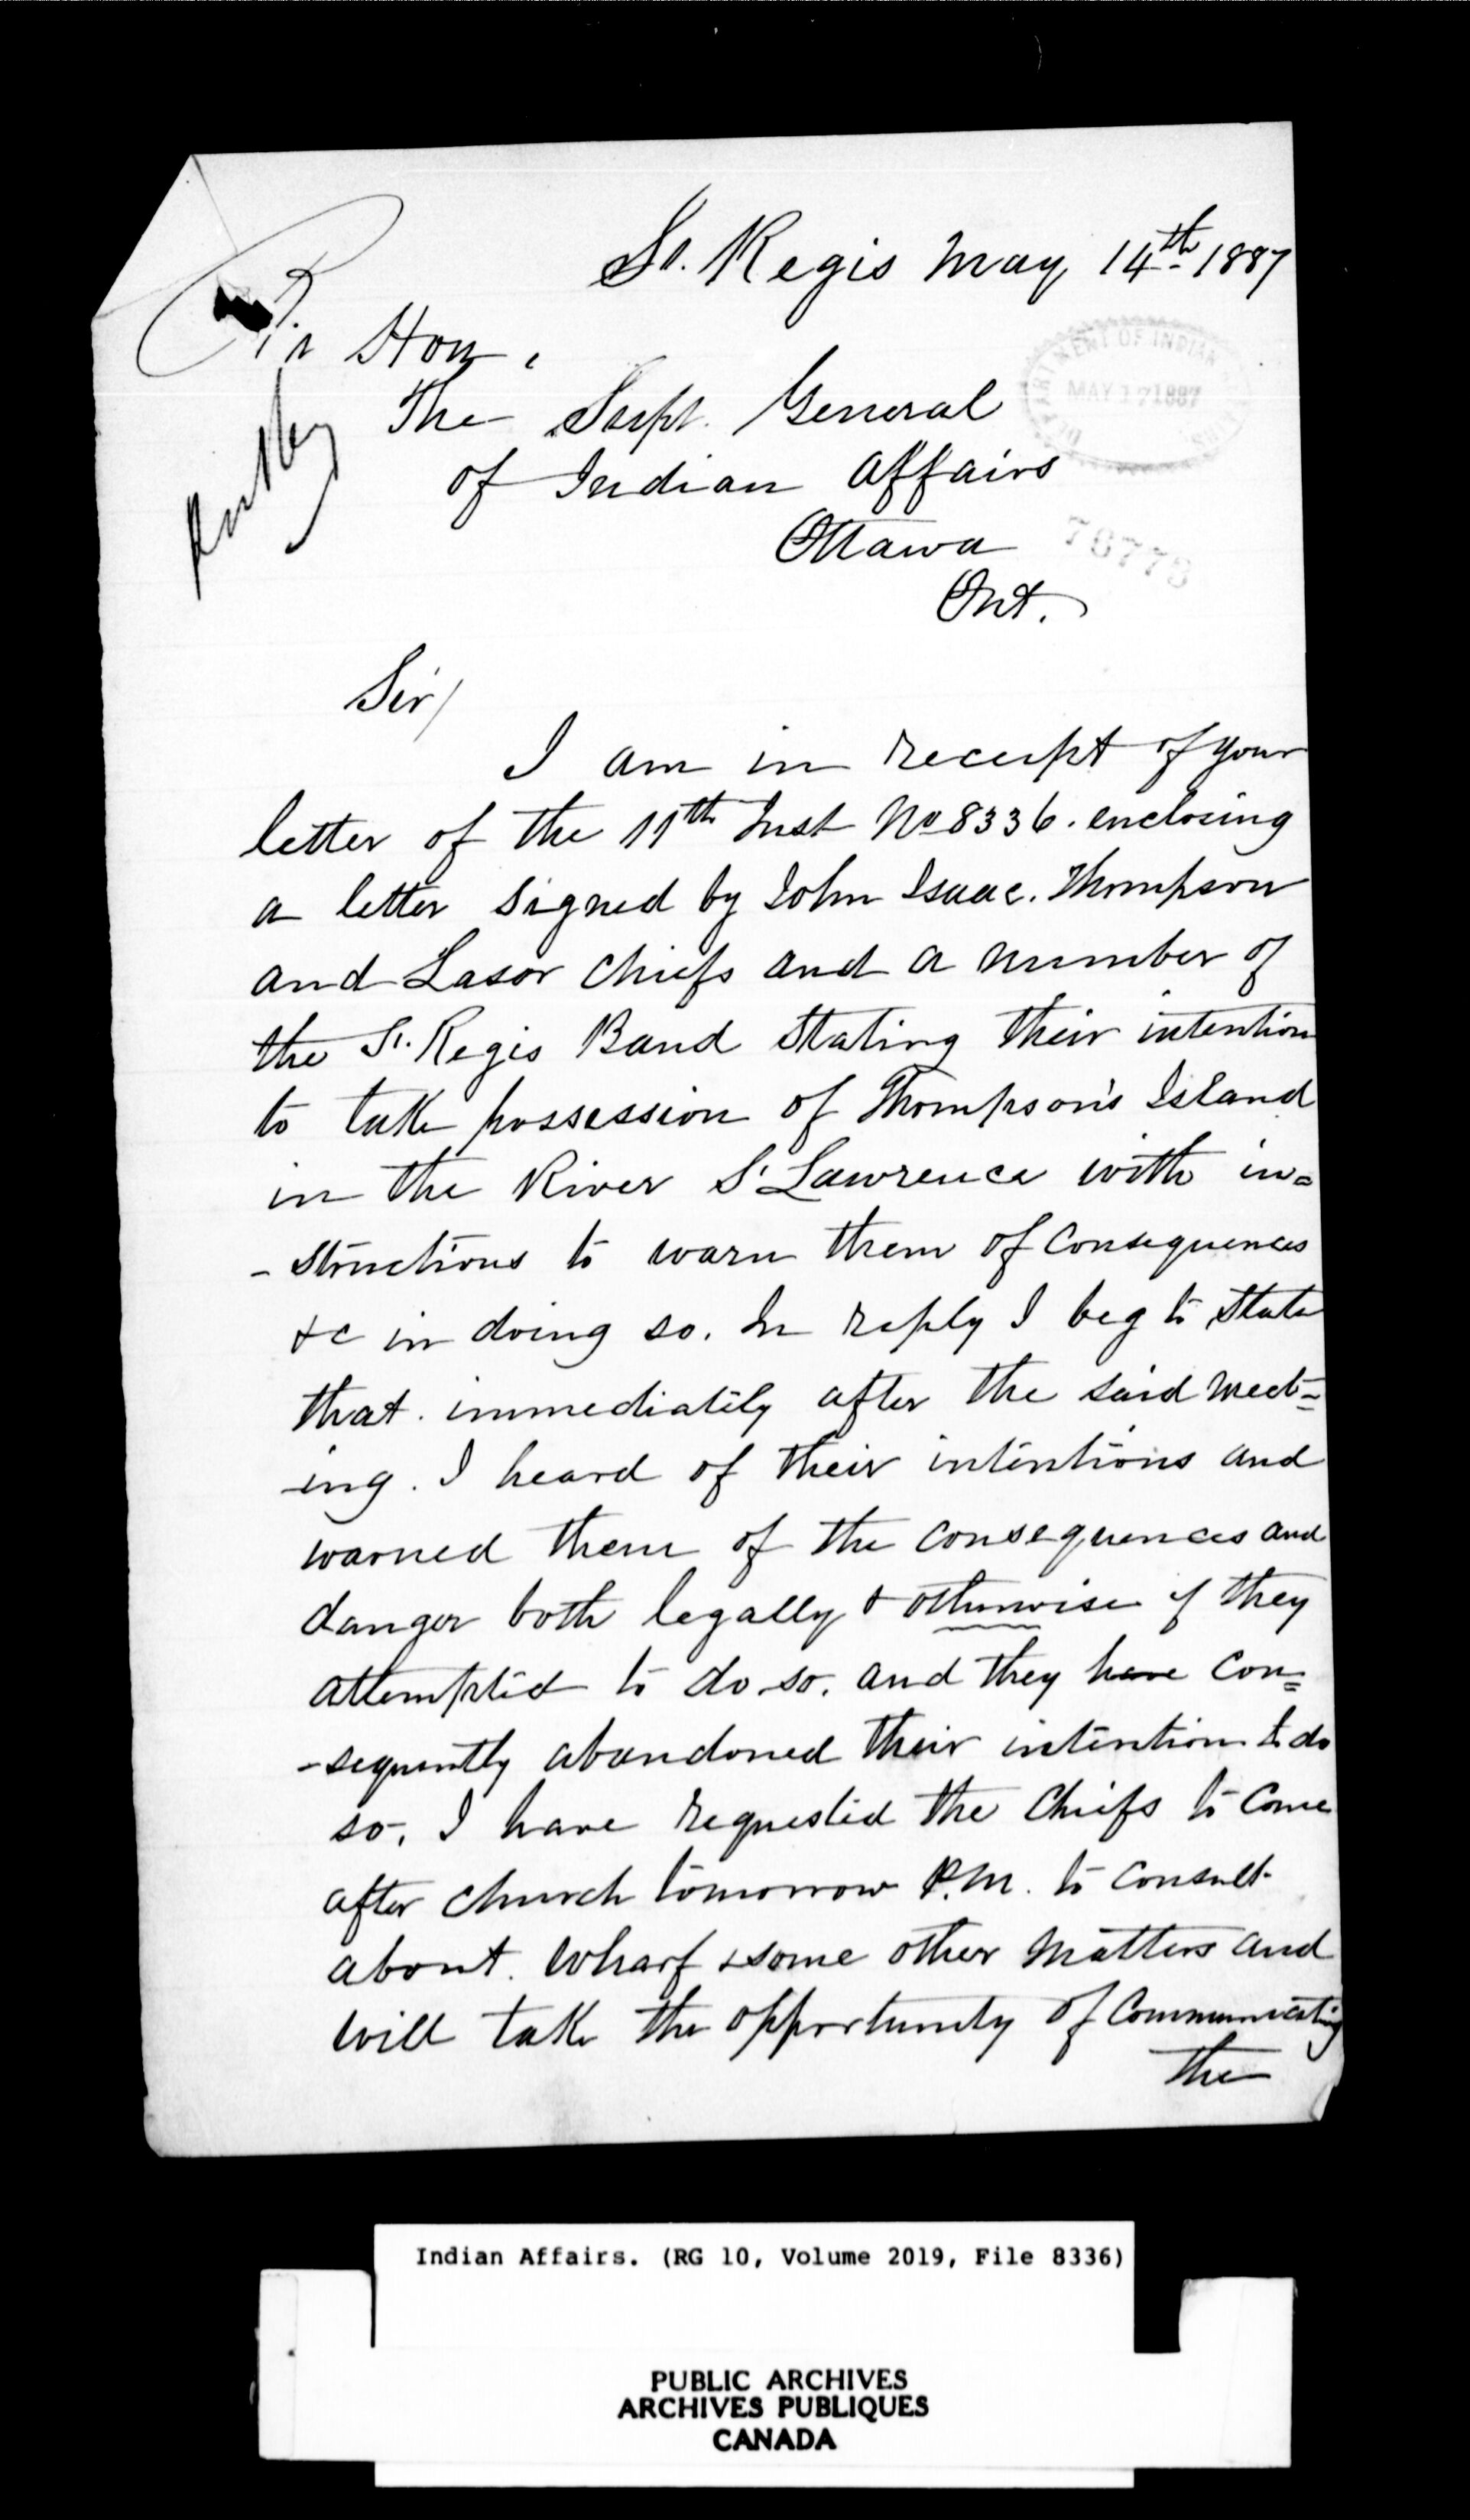 St. Regis May 14th 1887
Rt Hon.
The Supt. General
of Indian Affairs
Ottawa
Ont.
DEPARTMENT OF INDIAN AFFAIRS
MAY 17 1887
Sir/
I am in receipt of your
letter of the 11th Inst No 8336. enclosing
a letter signed by John Isaac. Thompson
and Lasor chiefs and a number of
the St. Regis Band stating their intention
to take possession of Thompson's Island
in the River St Lawrence with in=
-structions to warn them of consequences
&c in doing so. In reply I beg to state
that. immediately after the said meet=
ing. I heard of their intentions and
warned them of the consequences and
danger both legally & otherwise if they
attempted to do so. and they have con=
-sequently abandoned their intention to do
so. I have requested the Chiefs to come
after church tomorrow P.M. to consult
about. Wharf & some other matters and
will take the opportunity of communicating
the
Indian Affairs. (RG 10, Volume 2019, File 8336)
PUBLIC ARCHIVES
ARCHIVES PUBLIQUES
CANADA